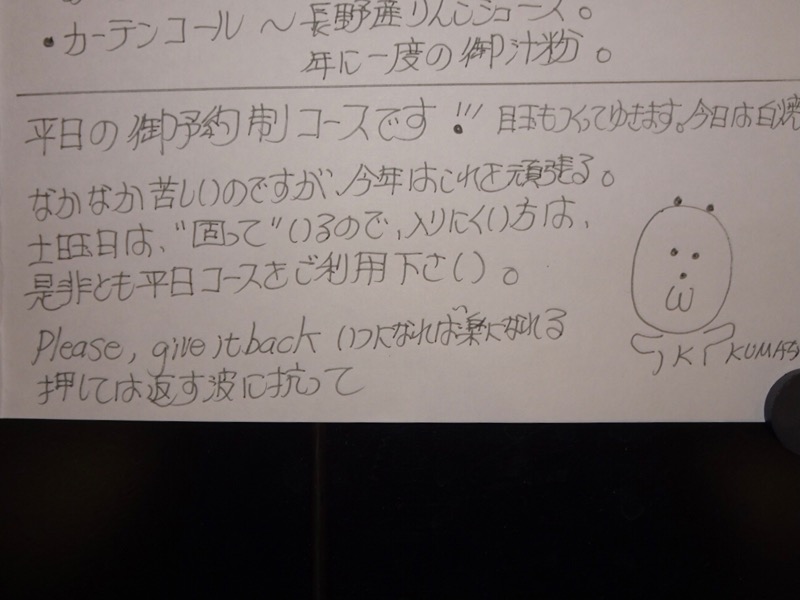 ・カーテンコール 〜 長野産りんごジュース。
年に一度の御汁粉。
平日の御予約制コースです!!! 目玉もつくってゆきます。今日は白焼
なかなか苦しいのですが、今年はこれを頑張る。
土日は、"固って"いるので、入りにくい方は、
是非とも平日コースをご利用下さい。
Please, give it back いつになれば楽になれる
押しては返す波に抗って
KUMA